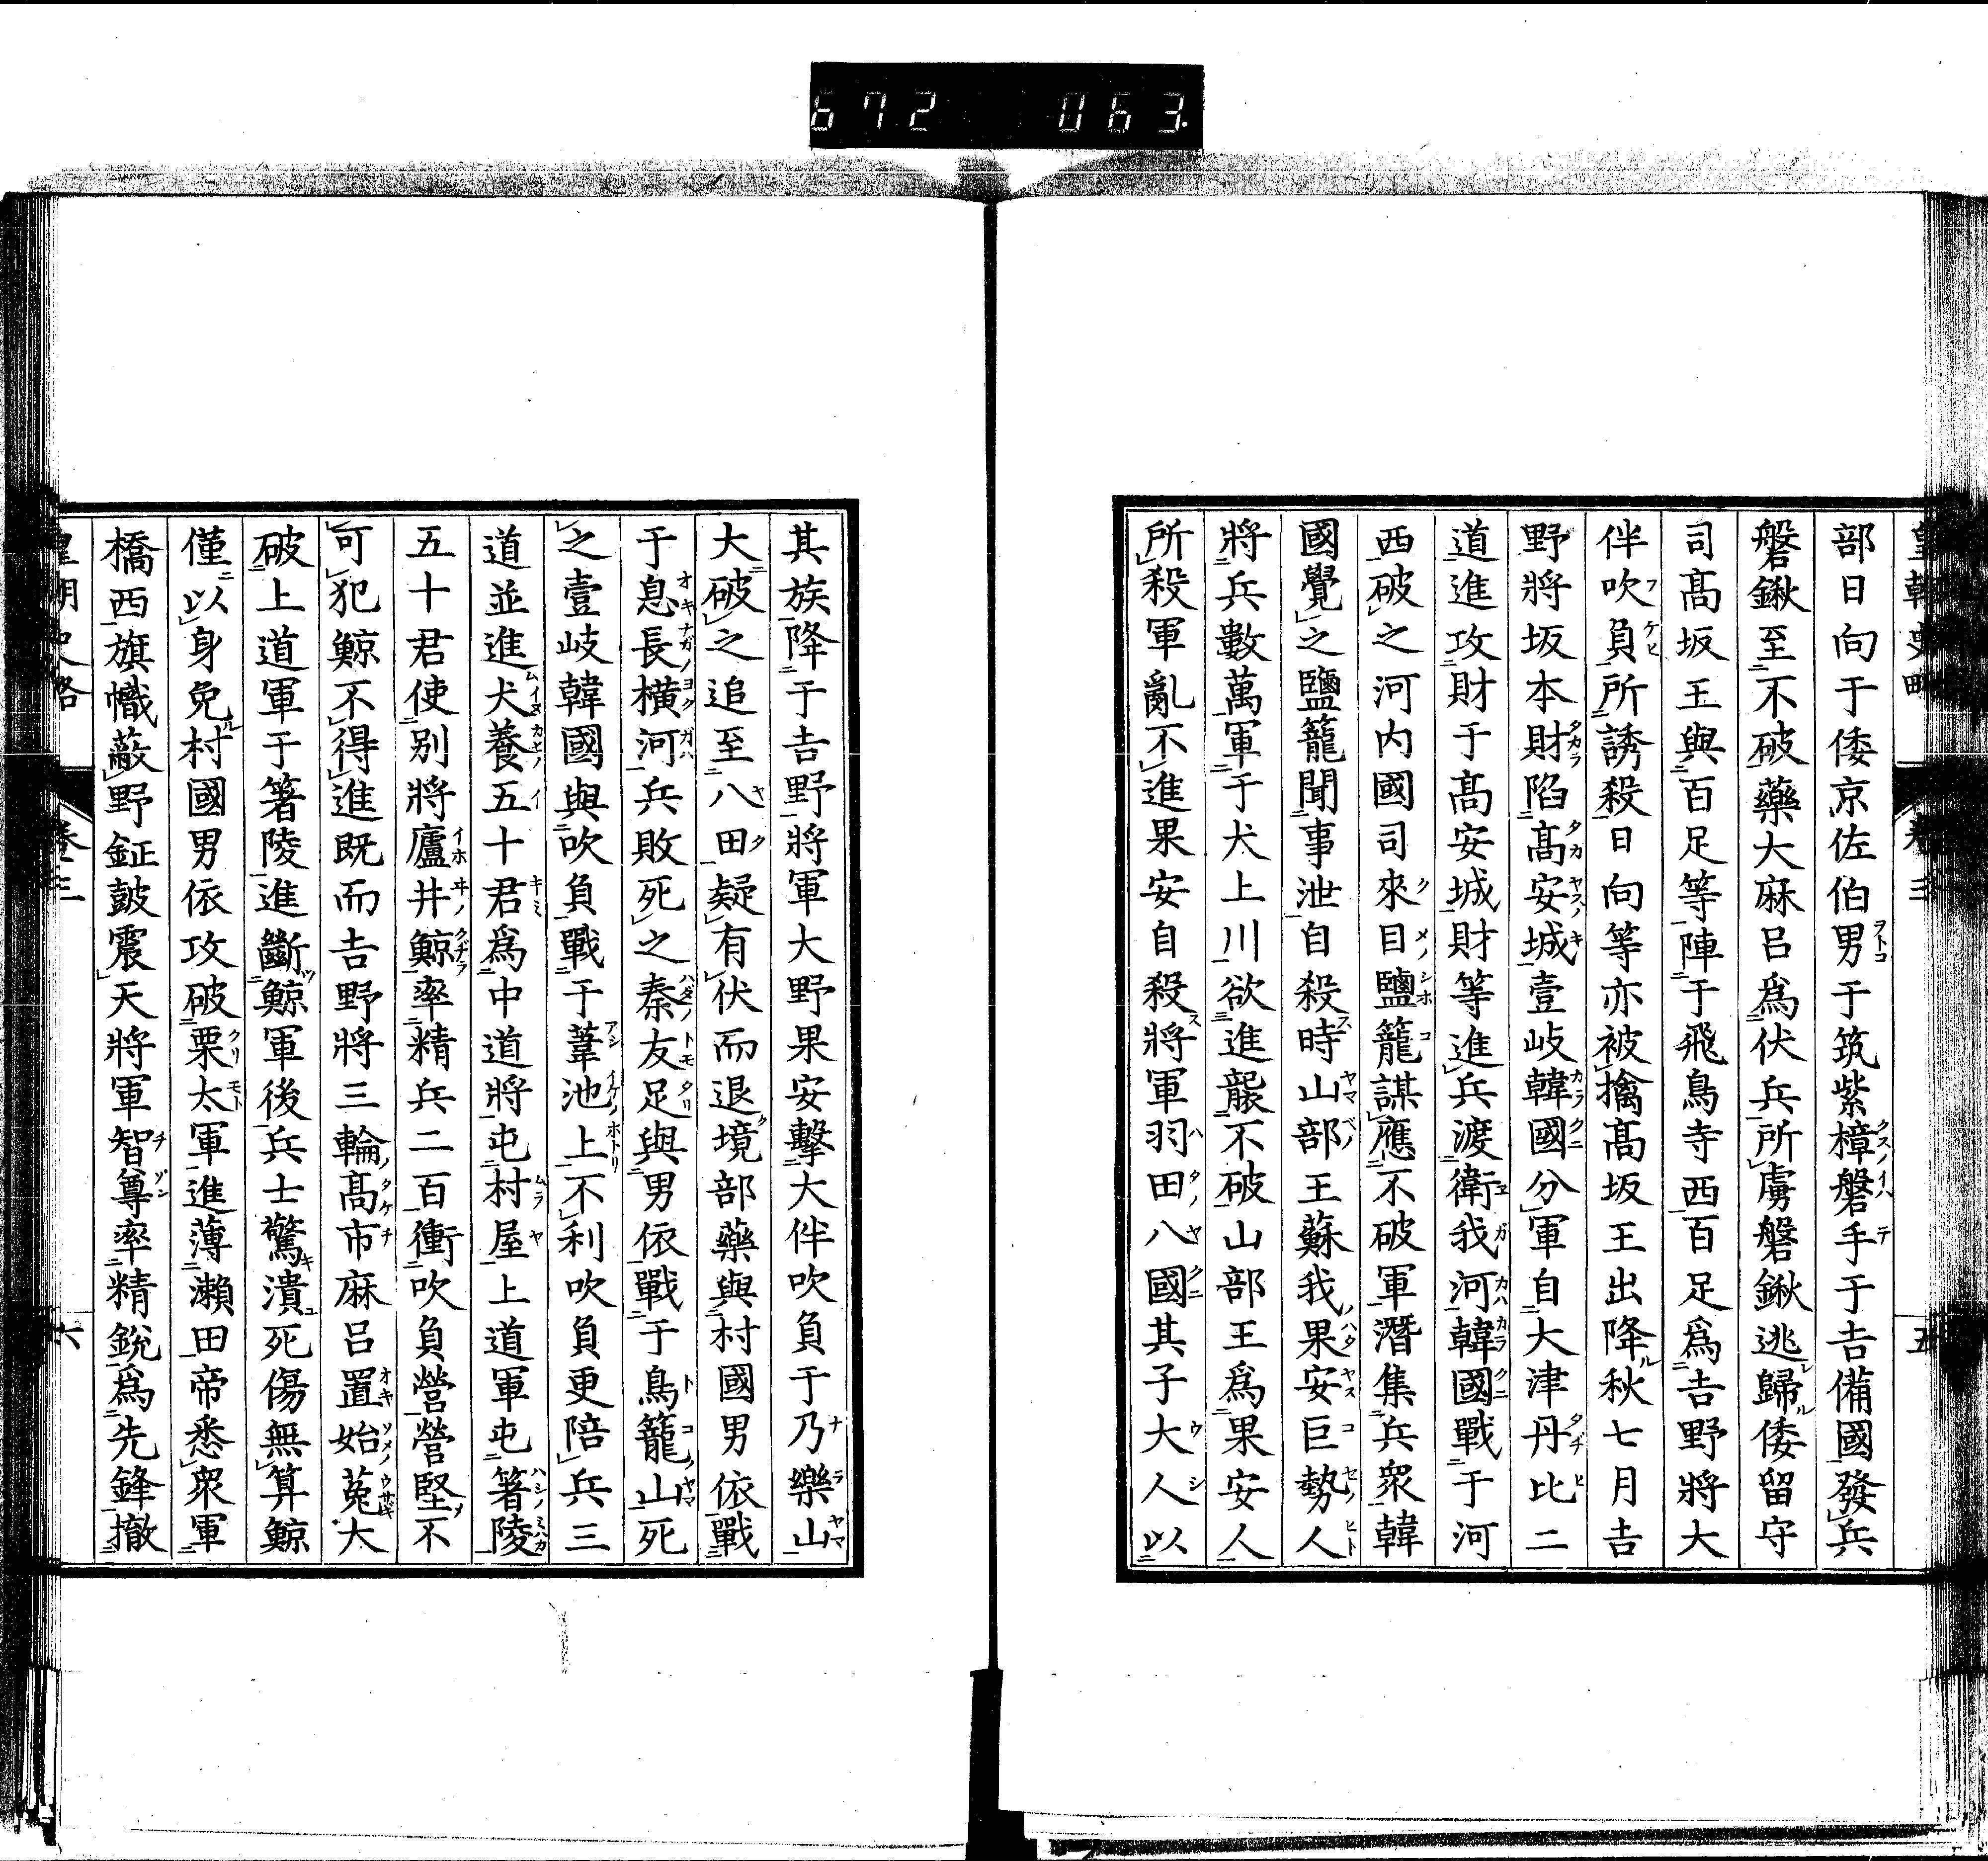 672 063.
皇朝史略 卷三 五
部日向于倭京佐伯男于筑紫樟磐手于吉備國發兵
磐鍬至不破藥大麻呂爲伏兵所虜磐鍬逃歸倭留守
司髙坂王與百足等陣于飛鳥寺西百足爲吉野將大
伴吹負所誘殺日向等亦被擒髙坂王出降秋七月吉
野將坂本財陷髙安城壹岐韓國分軍自大津丹比二
道進攻財于髙安城財等進兵渡衛我河韓國戰于河
西破之河内國司來目鹽籠謀應不破軍潛集兵衆韓
國覺之鹽籠聞事泄自殺時山部王蘇我果安巨勢人
將兵數萬軍于犬上川欲進襲不破山部王爲果安人
所殺軍亂不進果安自殺將軍羽田八國其子大人以
其族降于吉野將軍大野果安擊大伴吹負于乃樂山
大破之追至八田疑有伏而退境部藥與村國男依戰
于息長橫河兵敗死之秦友足與男依戰于鳥籠山死
之壹岐韓國與吹負戰于葦池上不利吹負更陪兵三
道並進犬養五十君爲中道將屯村屋上道軍屯箸陵
五十君使別將廬井鯨率精兵二百衝吹負營營堅不
可犯鯨不得進既而吉野將三輪髙市麻呂置始菟大
破上道軍于箸陵進斷鯨軍後兵士驚潰死傷無算鯨
僅以身免村國男依攻破栗太軍進薄瀬田帝悉衆軍
橋西旗幟蔽野鉦鼓震天將軍智尊率精銳爲先鋒撤
皇朝史略 卷三 六